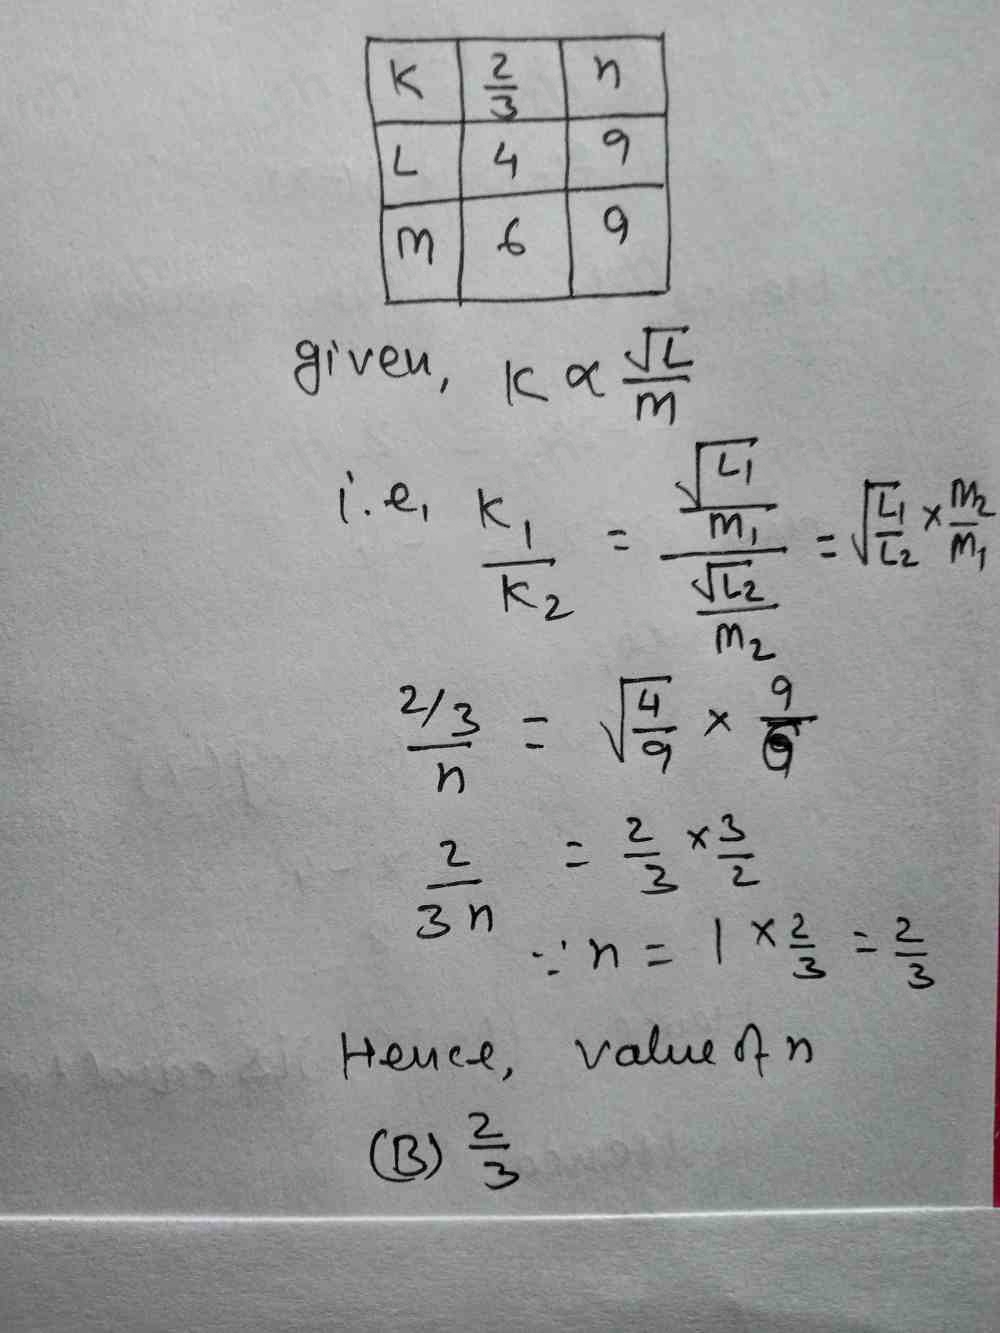 K 2/3 n
L 4 9
M 6 9
given, K ∝ √L/M
i.e, K₁/K₂ = (√L₁/M₁)/(√L₂/M₂) = √(L₁/L₂) × M₂/M₁
(2/3)/n = √(4/9) × 9/6
2/3n = 2/3 × 3/2
∵ n = 1 × 2/3 = 2/3
Hence, value of n
(B) 2/3